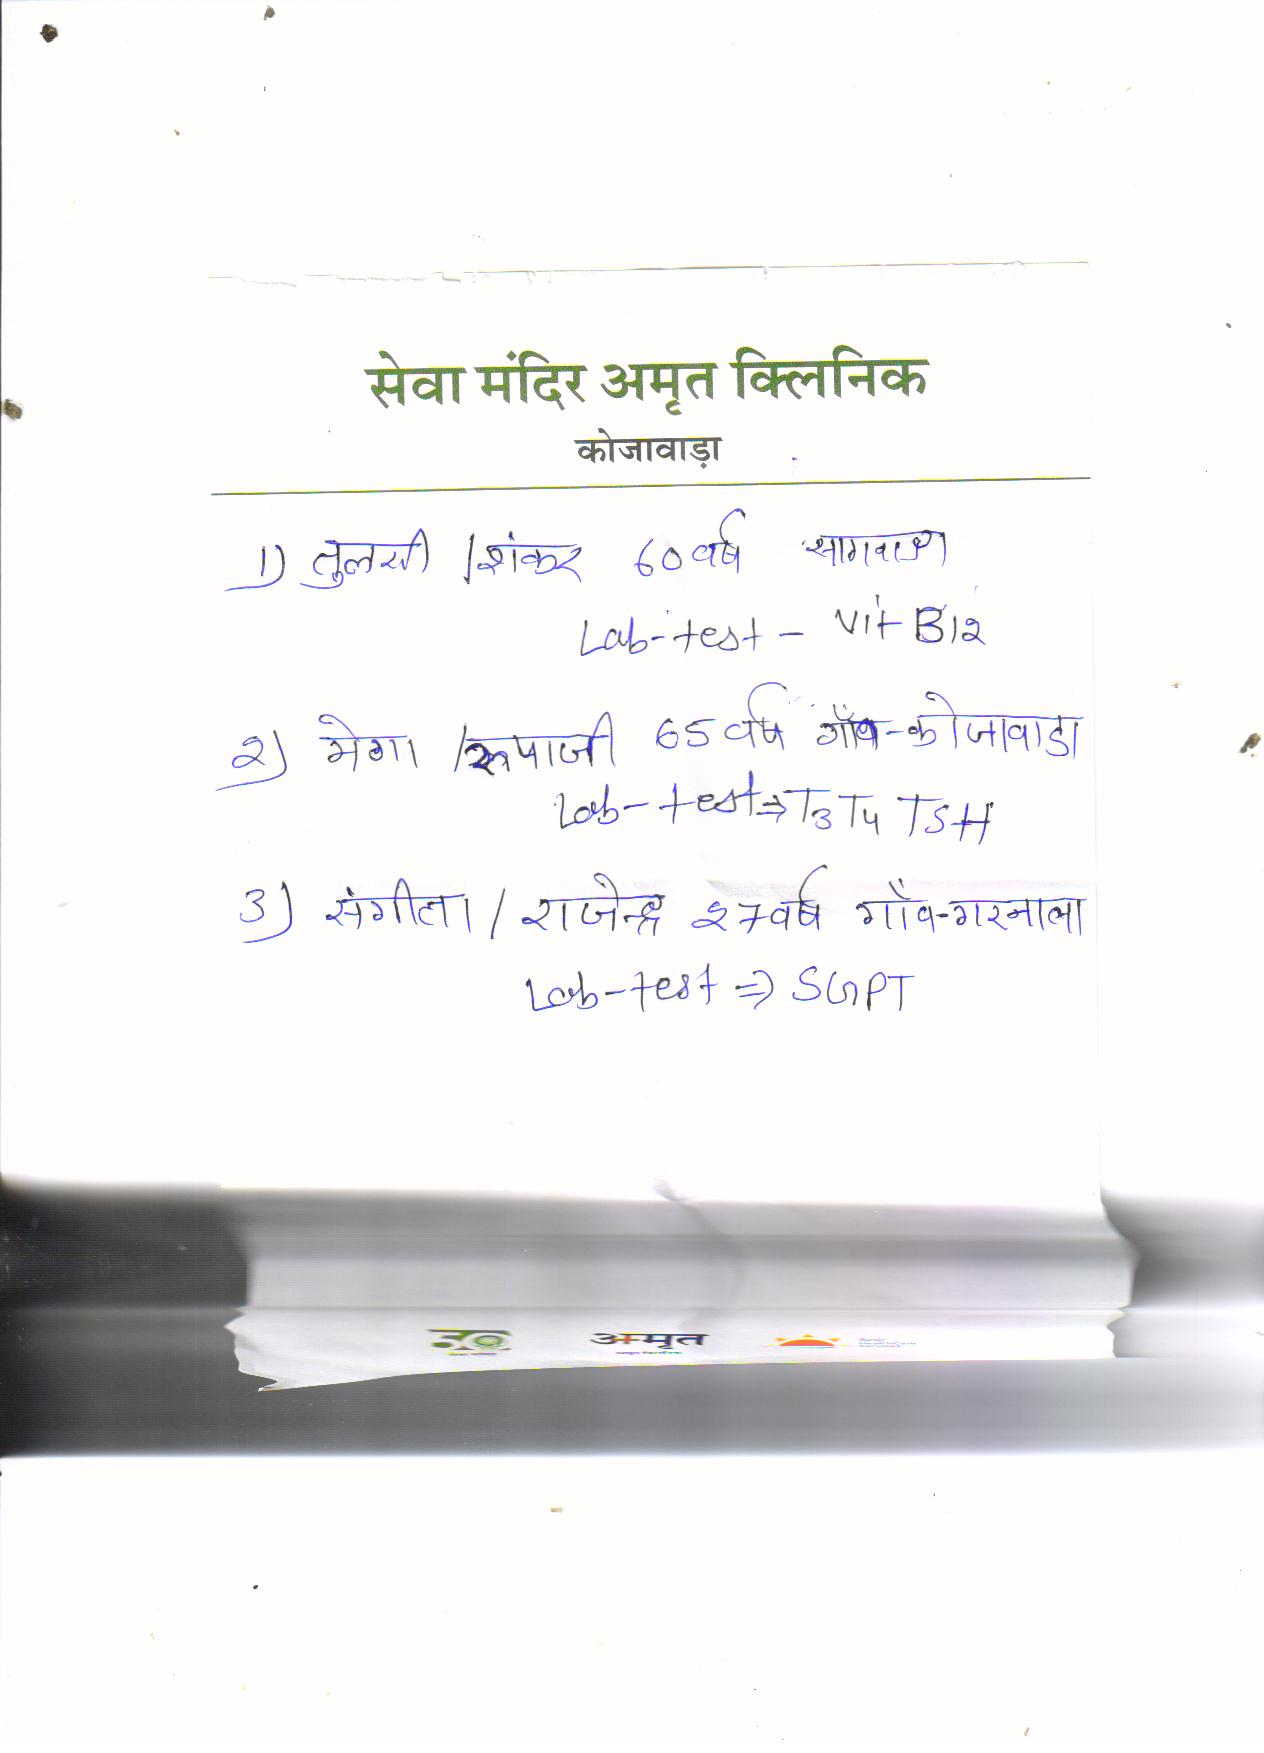 सेवा मंदिर अमृत क्लिनिक
कोजावाड़ा
1) तुलसी / शंकर 60 वर्ष
Lab-test - Vit B12
2) मेगा / रूपाजी 65 वर्ष गाँव-कोजावाडा
Lab-test ⇒ T3 T4 TSH
3) संगीता / राजेन्द्र 27 वर्ष गाँव-गरनाला
Lab-test ⇒ SGPT
50 अमृत